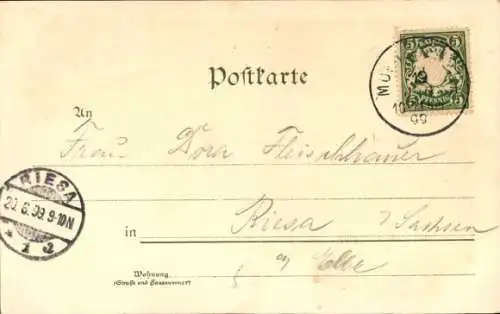 Postkarte
5 5
PFENNIG
MÜ
99
An
Frau Dora Fleischhauer
RIESA
20.6.99.9-10N
1
in Riesa i/Sachsen
a/ Elbe
Wohnung
(Straße und Hausnummer)